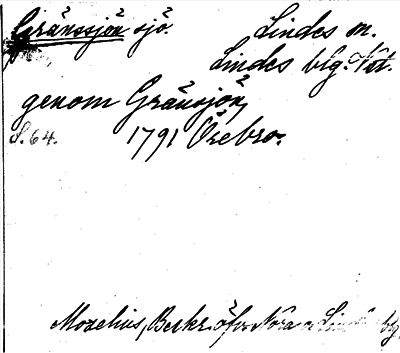 Gränssjön sjö. Lindes sn.
Lindes blg. Väst.
genom Gränsjön,
S. 64. 1791 Örebro.
Moxelius, Beskr. öfv. Nora o Linde blg